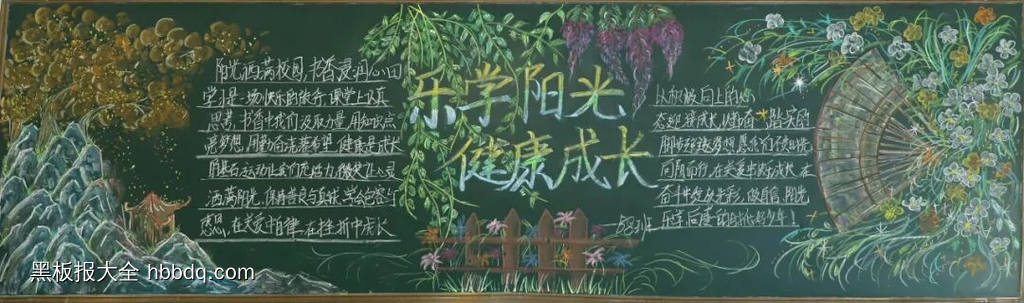 阳光洒满校园,书香浸润心田
学习是一场快乐的旅行,课堂上认真
思考,书香中我们汲取力量,用知识点
亮梦想,用勤奋浇灌希望,健康是成长
的基石,运动让我们充满活力,微笑让心灵
洒满阳光,保持善良与真诚,学会包容与
感恩,在关爱中自律,在挫折中成长
乐学阳光
健康成长
以积极向上的心
态迎接成长,以勤奋踏实的
脚步
向阳而行,在关爱中茁壮成长,在
奋斗中绽放光彩,做自信、阳光
乐学、有度的时代好少年!
黑板报大全 hbbdq.com